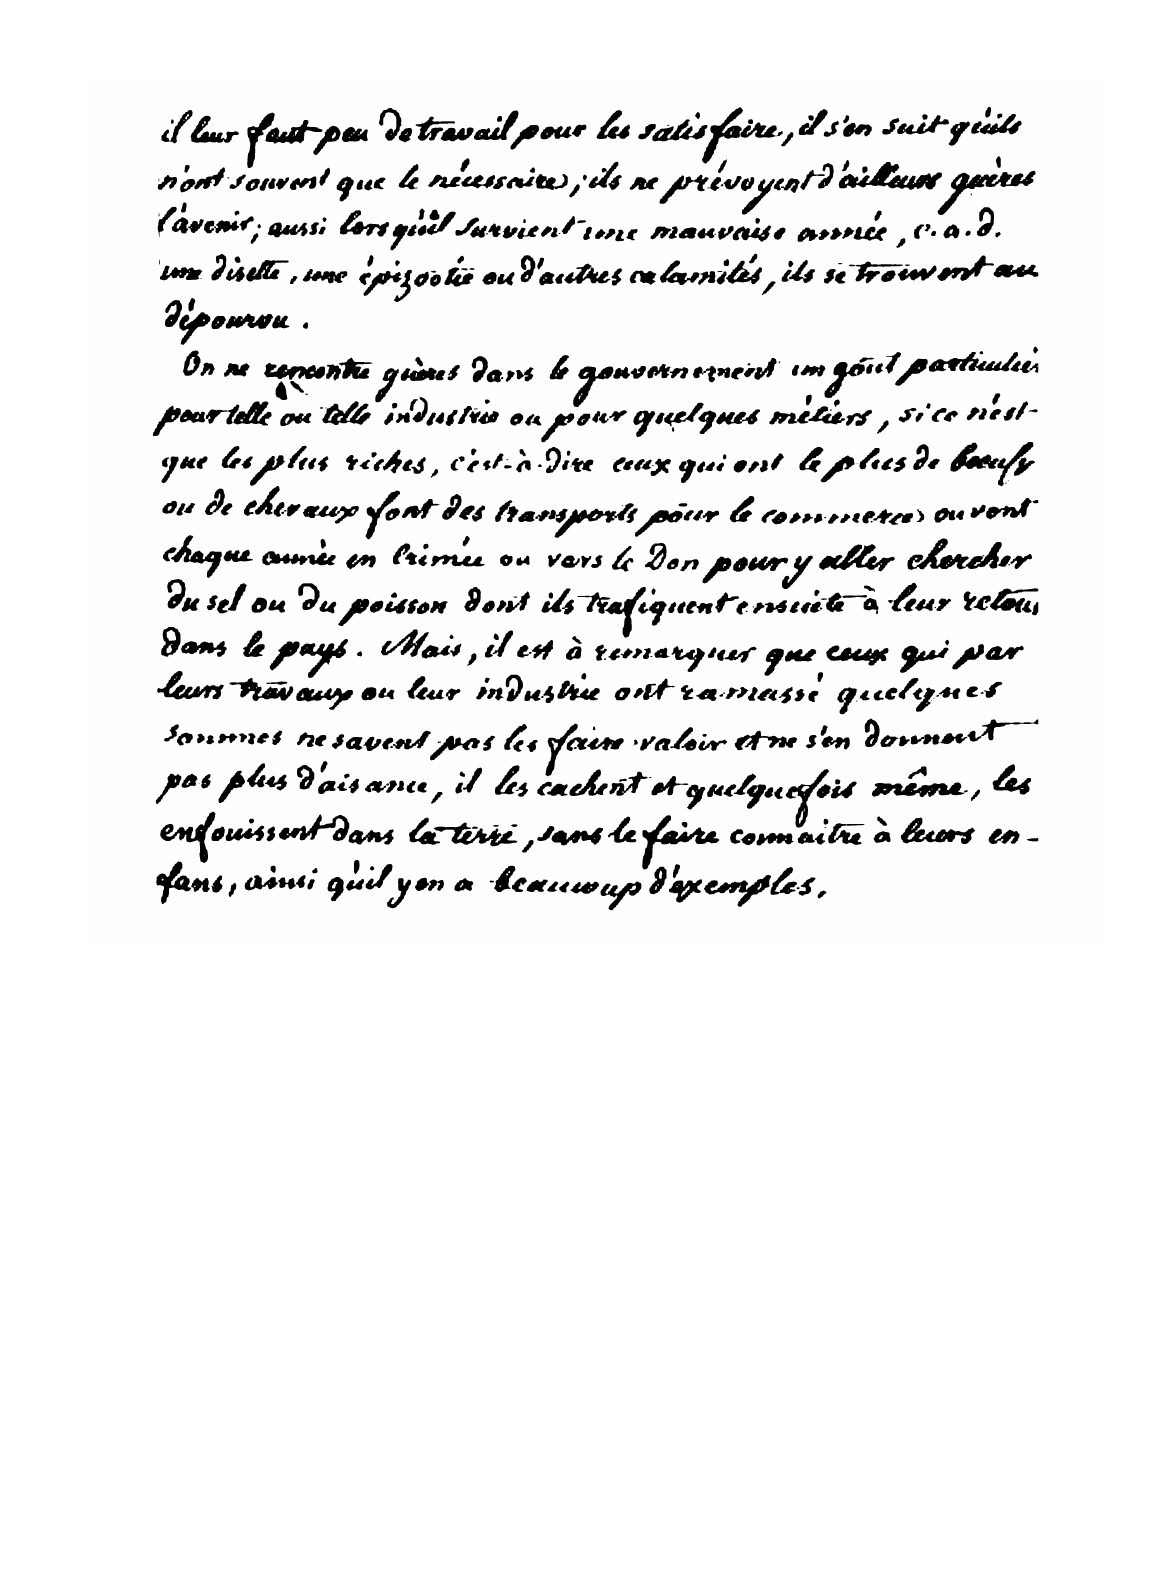 il leur faut peu de travail pour les satisfaire, il s'en suit qu'ils
n'ont souvent que le nécessaire; ils ne prévoyent d'ailleurs guères
l'avenir; aussi lorsqu'il survient une mauvaise année, c.a.d.
une disette, une épizootie ou d'autres calamités, ils se trouvent au
dépourvu.
On ne rencontre guères dans le gouvernement un goût particulier
pour telle ou telle industrie ou pour quelques métiers, si ce n'est
que les plus riches, c'est-à-dire ceux qui ont le plus de bœufs
ou de chevaux font des transports pour le commerce ou vont
chaque année en Crimée ou vers le Don pour y aller chercher
du sel ou du poisson dont ils trafiquent ensuite à leur retour
dans le pays. Mais, il est à remarquer que ceux qui par
leurs travaux ou leur industrie ont ramassé quelques
sommes ne savent pas les faire valoir et ne s'en donnent
pas plus d'aisance, il les cachent et quelquefois même, les
enfouissent dans la terre, sans le faire connaitre à leurs en-
fans, ainsi qu'il y en a beaucoup d'exemples.